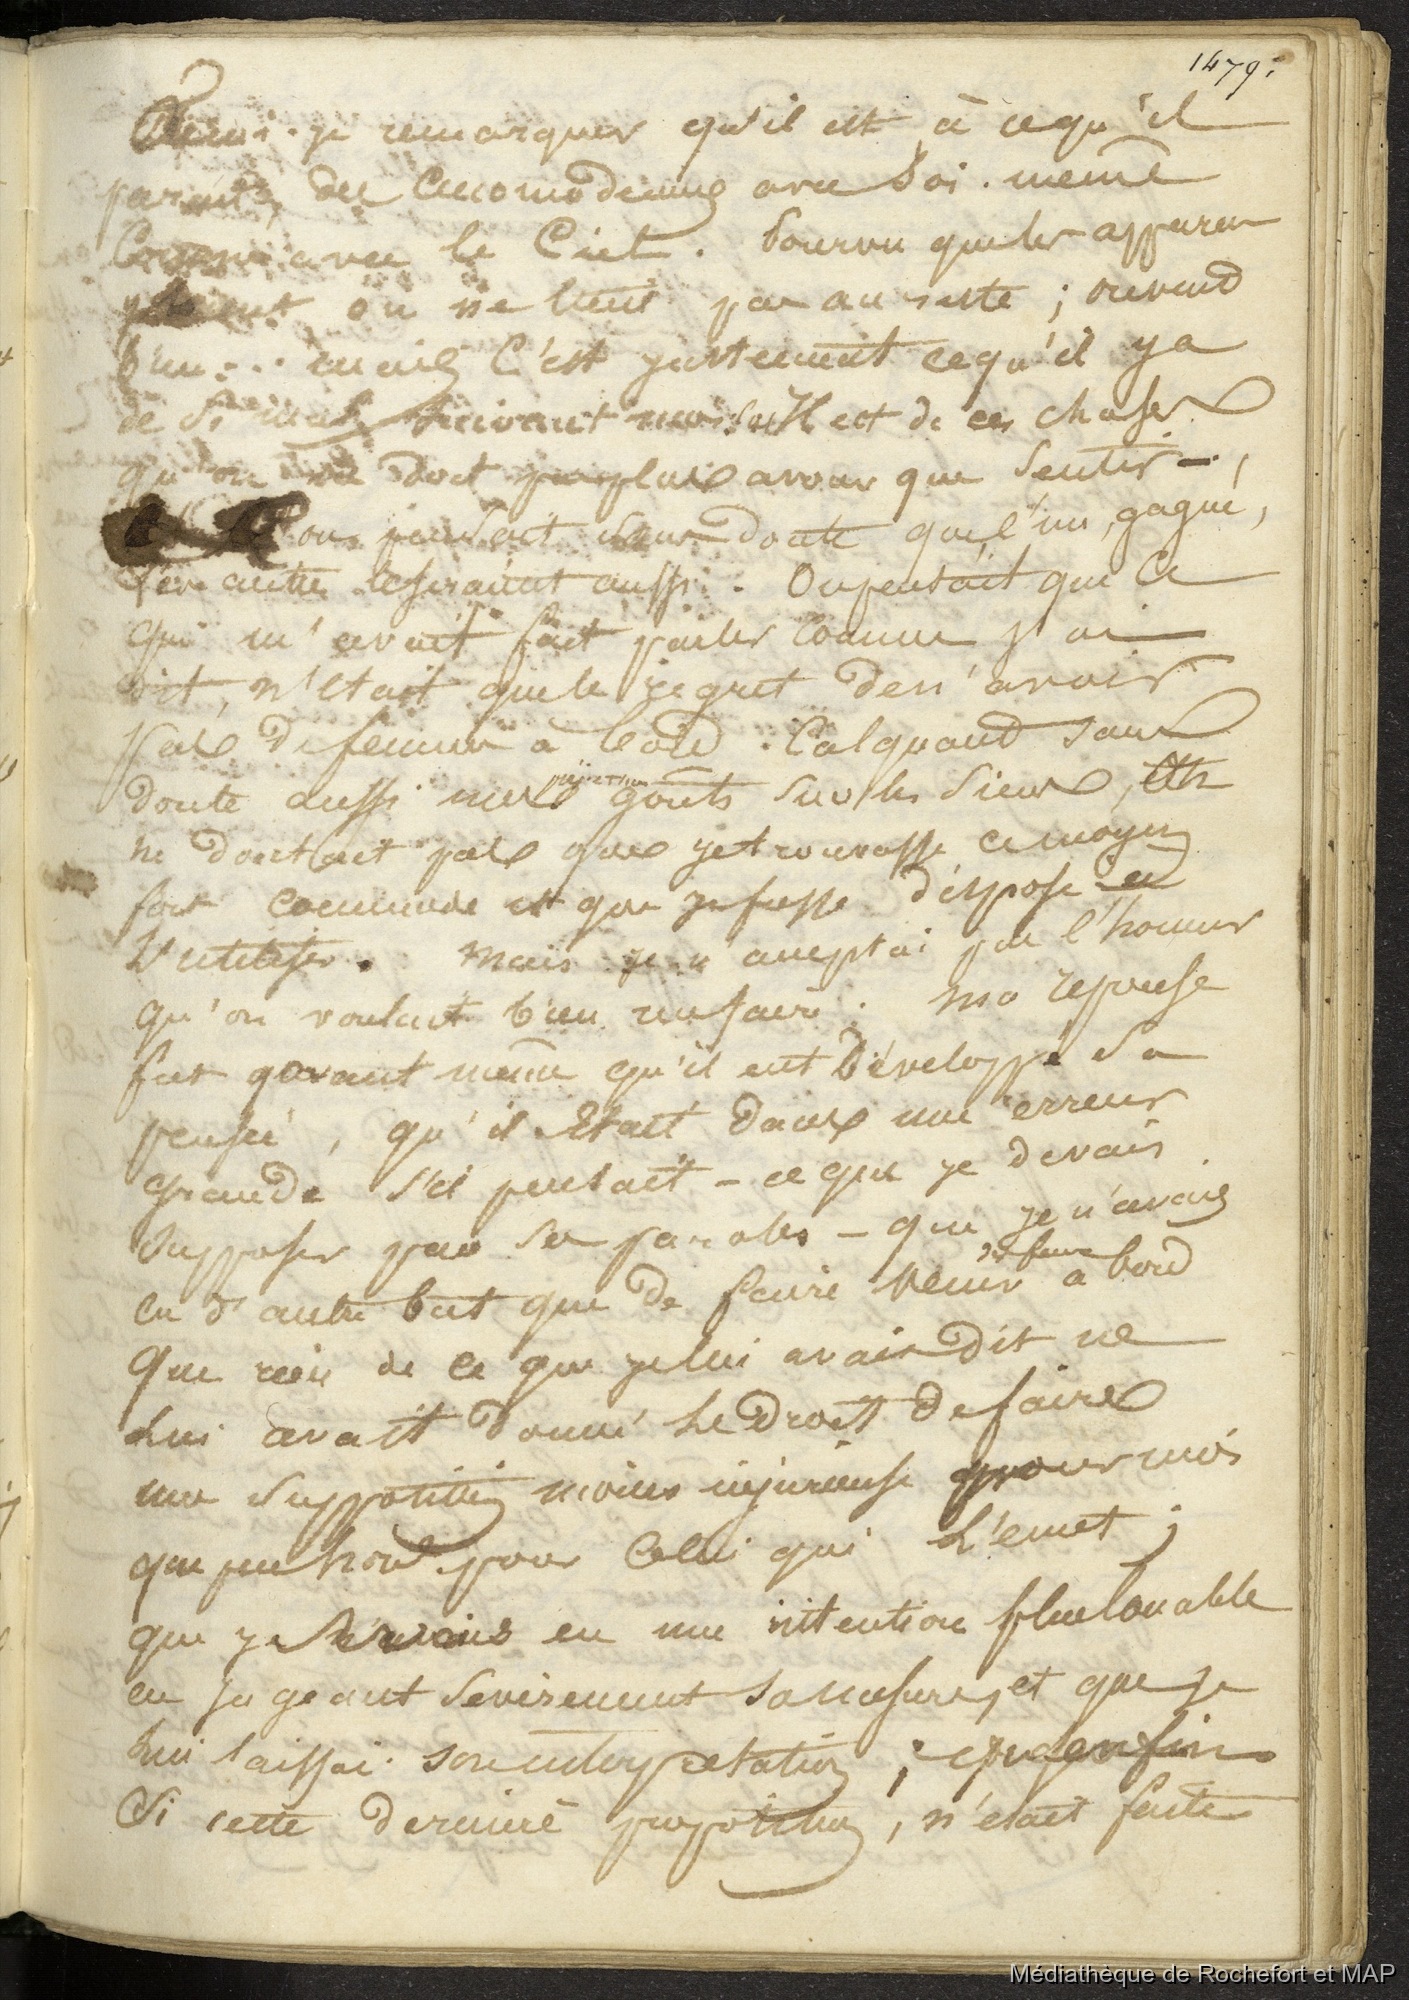 1479.
-je remarquer qu'il est à ce qu'il
parait, des accomodemens avec soi-même
Comme avec le Ciel. Pourvu que les apparen
on ne tient pas au reste ;
bien... mais C'est justement ce qu'il y a
de si mal suivant moi. Il est de ces choses
qu'on ne doit pas plus avouer que sentir -,
on pensait sans doute que l'un, gagné,
les autres le seraient aussi. On pensait que ce
qui m'avait fait parler comme j'ai
dit, n'était que le regret de n'avoir
pas de femmes à bord. Calquant sans
doute aussi mes goûts sur les siens, on
ne doutait pas que je trouvasse ce moyen
fort commode et que je fusse disposé à
l'utiliser. Mais je n'acceptai pas l'honneur
qu'on voulait bien me faire. Ma réponse
fut avant même qu'il eut développé sa
pensée, qu'il était dans une erreur
grande s'il pensait - ce que je devais
supposer par ses paroles - que je n'avais
eu d'autre but que de faire venir des femmes à bord
Que rien de ce que je lui avais dit ne
lui avait donné le droit de faire
une supposition moins injurieuse pour moi
que peu honble pour celui qui l'émet ;
que je eu une intention plus louable
en jugeant sévèrement sa mesure, et que je
lui laissai son interprétation ; qu'enfin
Si cette dernière proposition, n'était faite
Médiathèque de Rochefort et MAP